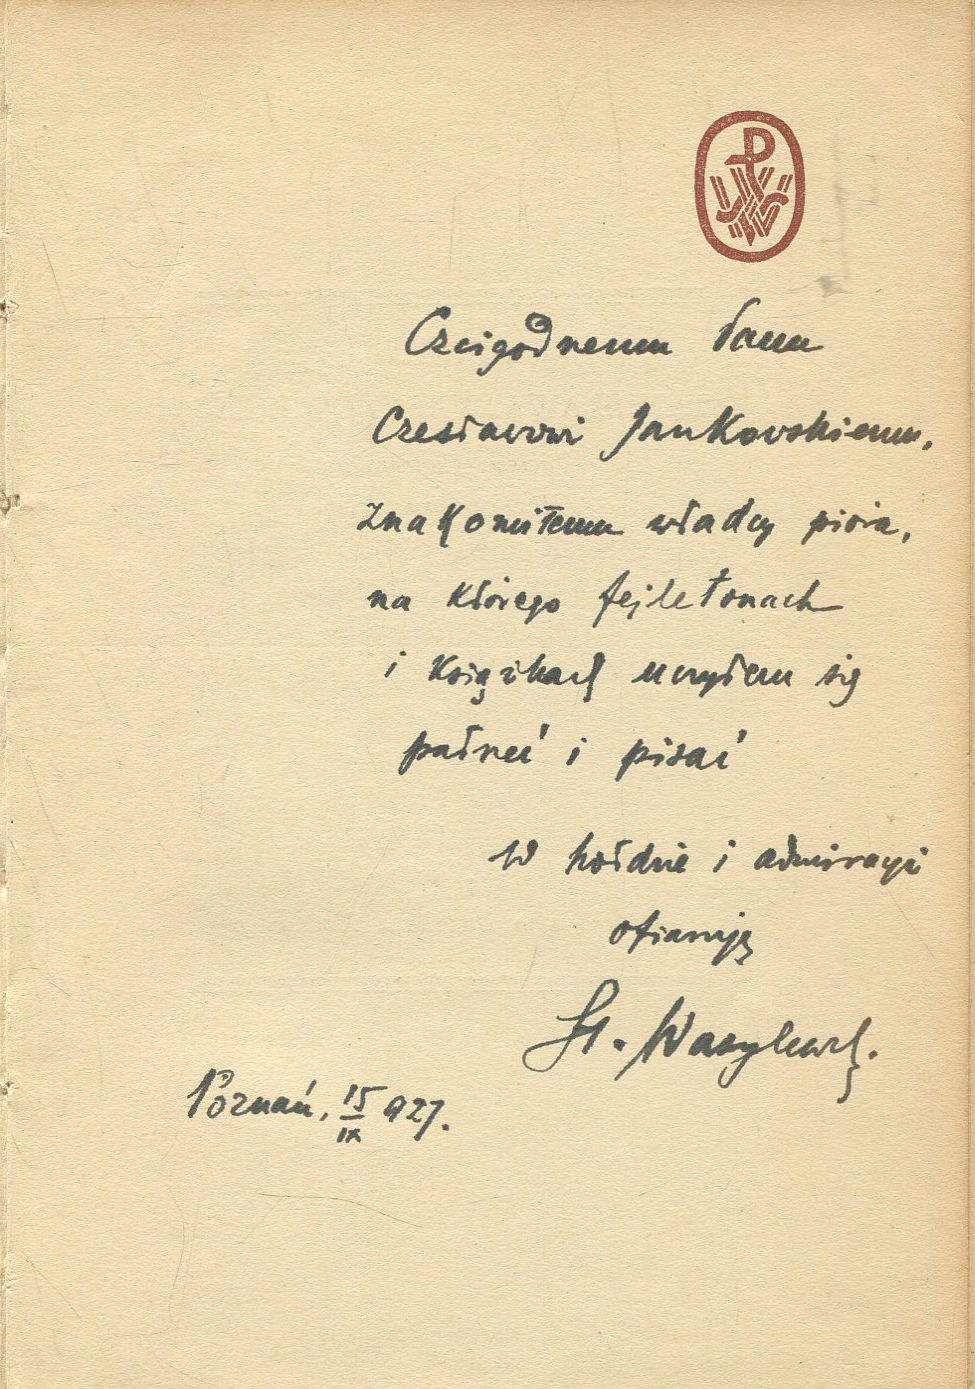 Czcigodnemu Panu
Czesławowi Jankowskiemu,
znakomitemu władcy pióra,
na którego fejletonach
i książkach uczyłem się
patrzeć i pisać
W hołdzie i admiracyi
ofiaruję
St. Wasylewsk.
Poznań, 15/IX 927.